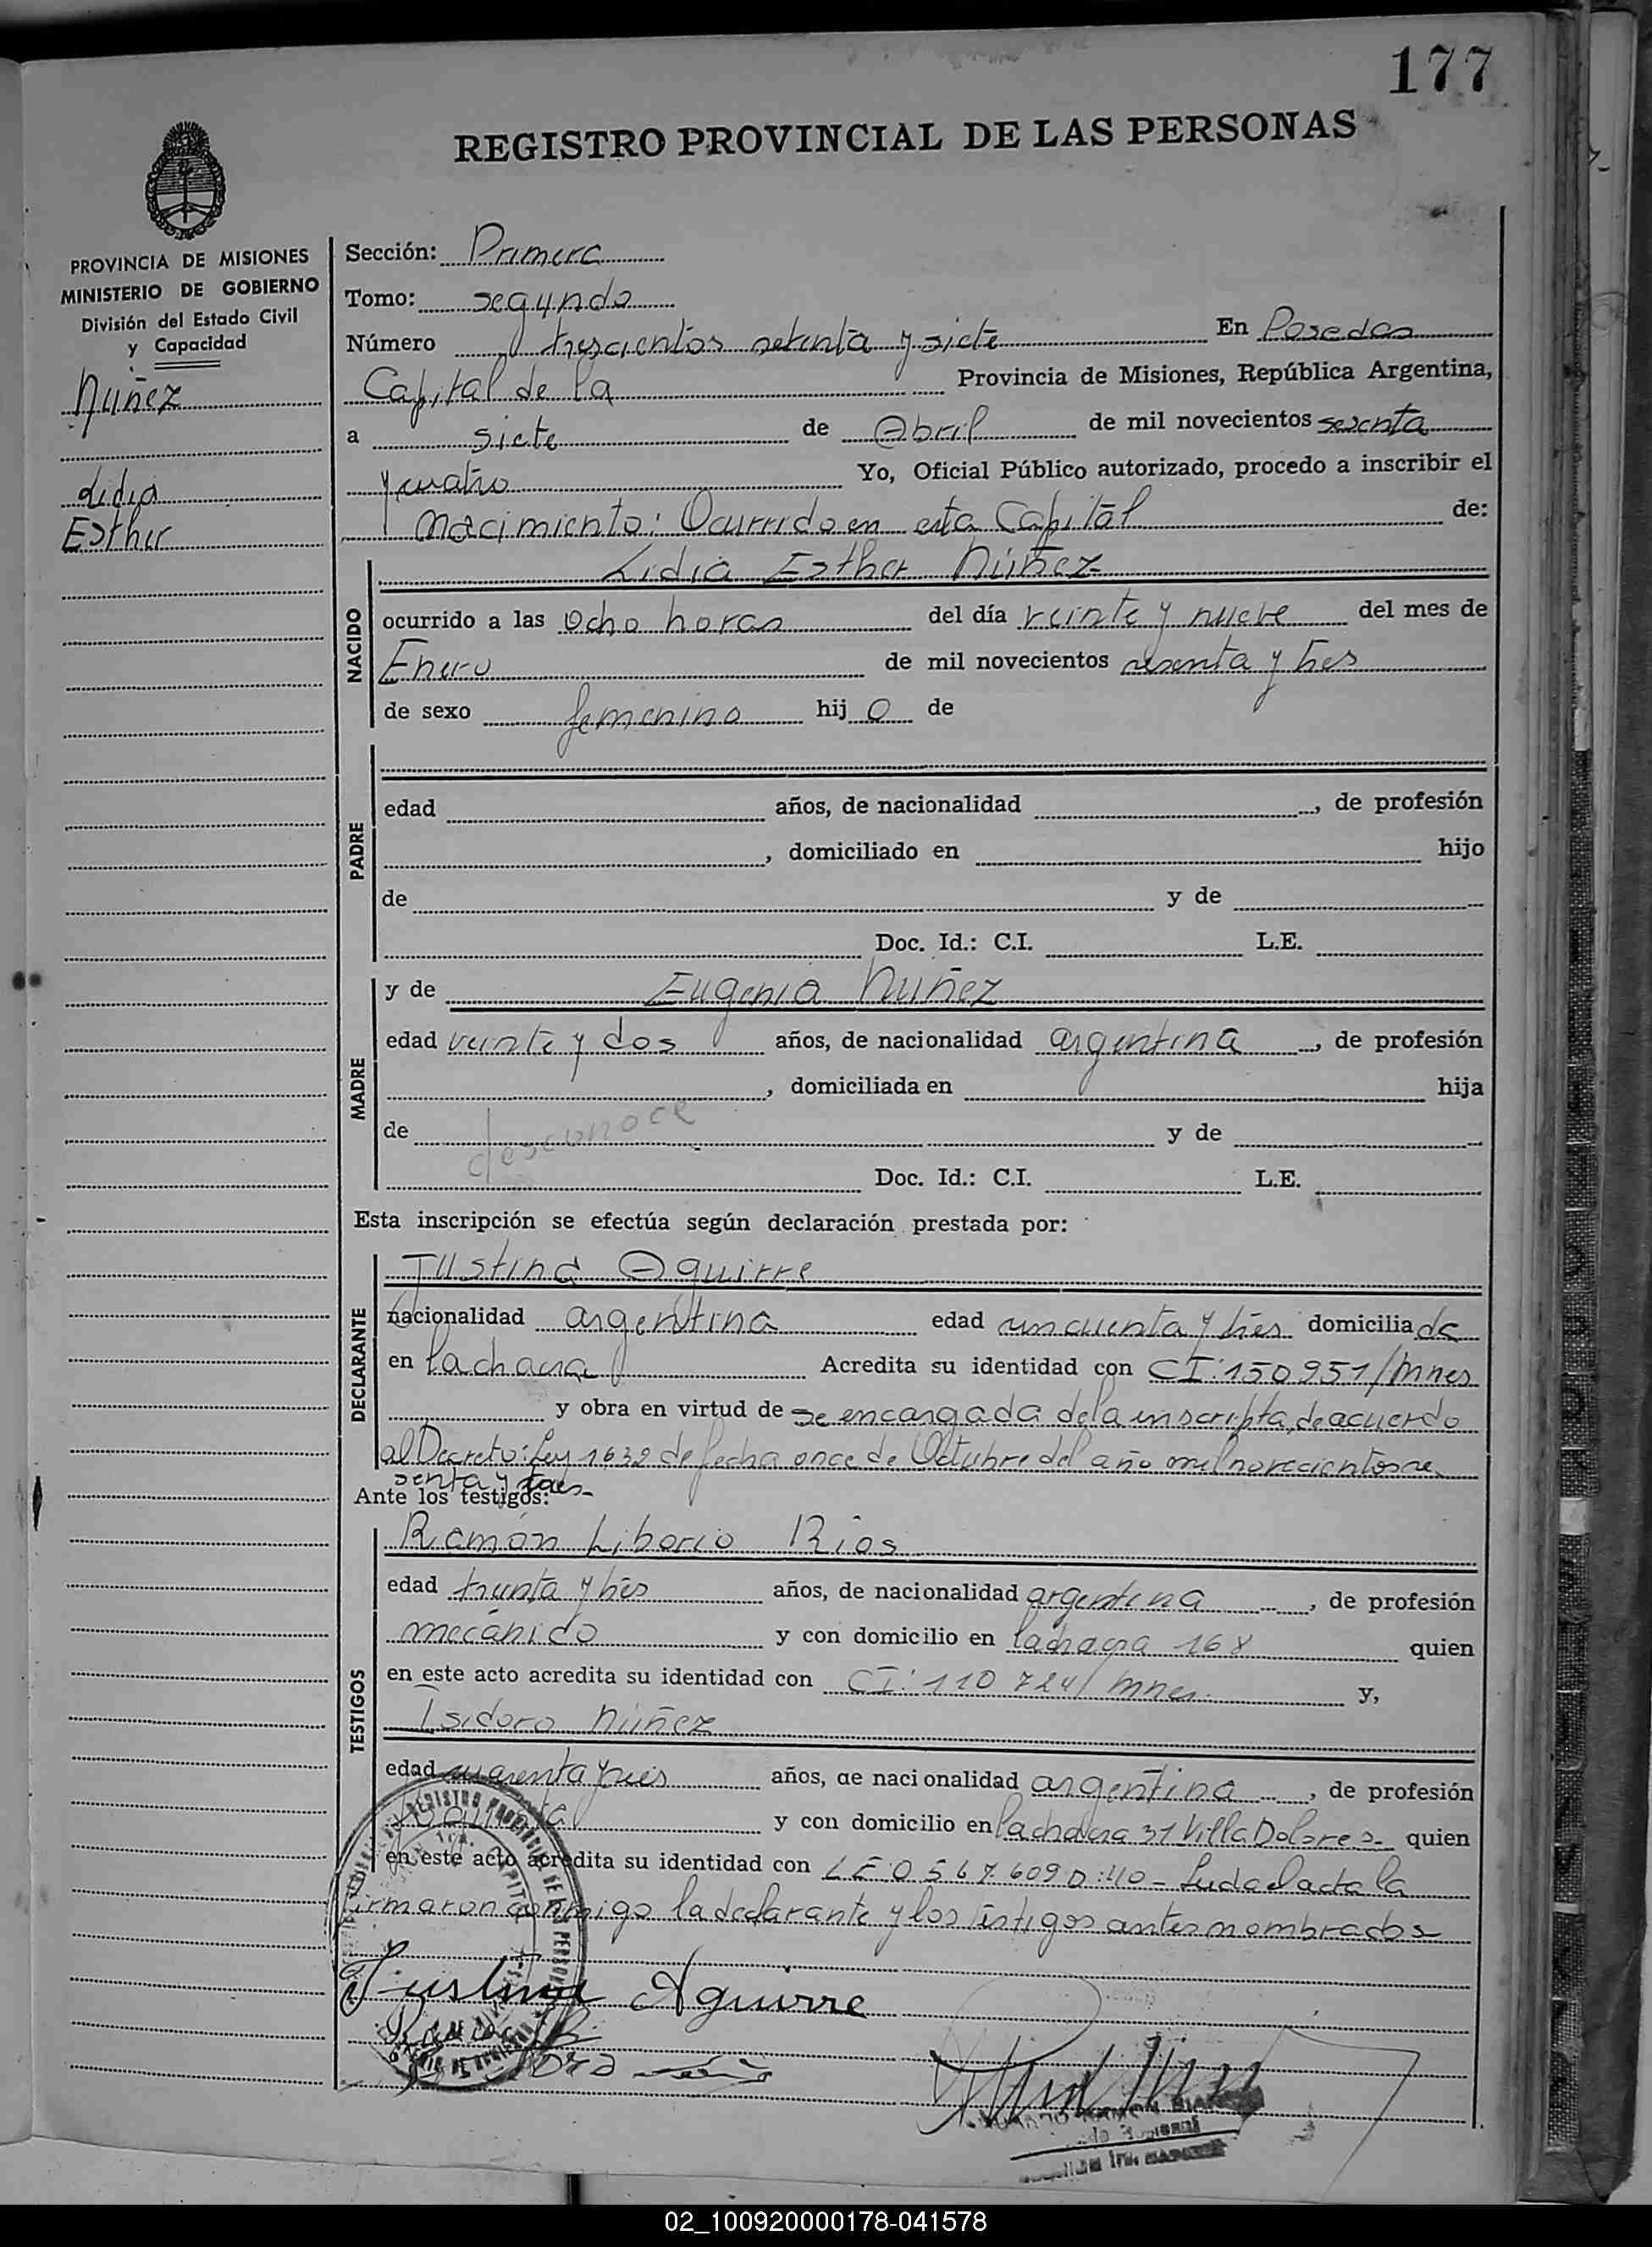 177
REGISTRO PROVINCIAL DE LAS PERSONAS
PROVINCIA DE MISIONES
MINISTERIO DE GOBIERNO
División del Estado Civil
y Capacidad
Nuñez
Lidia
Esther
Sección: Primera
Tomo: segundo
Número trescientos setenta y siete En Posadas
Capital de la Provincia de Misiones, República Argentina,
a siete de Abril de mil novecientos sesenta
y cuatro Yo, Oficial Público autorizado, procedo a inscribir el
Nacimiento: Ocurrido en esta Capital de:
NACIDO
Lidia Esther Núñez
ocurrido a las Ocho horas del día veinte y nueve del mes de
Enero de mil novecientos sesenta y tres
de sexo femenino hij o de
PADRE
edad años, de nacionalidad , de profesión
, domiciliado en hijo
de y de
Doc. Id.: C.I. L.E.
MADRE
y de Eugenia Nuñez
edad veinte y dos años, de nacionalidad argentina , de profesión
, domiciliada en hija
de desconoce y de
Doc. Id.: C.I. L.E.
Esta inscripción se efectúa según declaración prestada por:
DECLARANTE
Justina Aguirre
nacionalidad argentina edad cincuenta y tres domiciliada
en la chacra Acredita su identidad con CI: 150951/Mnes
y obra en virtud de se encargada de la inscripta, de acuerdo
al Decreto: Ley 1632 de fecha once de Octubre del año mil novecientos se
senta y tres-
Ante los testigos:
TESTIGOS
Ramón Liborio Rios
edad treinta y tres años, de nacionalidad argentina , de profesión
mecánido y con domicilio en la chacra 168 quien
en este acto acredita su identidad con CI: 110 724/ mnes. y,
Isidoro Núñez
edad cuarenta y años, de nacionalidad argentina , de profesión
y con domicilio en la chacra 31 Villa Dolores- quien
en este acto acredita su identidad con LE 0567609 D:40- Leida el acta la
firmaron conmigo la declarante y los testigos antes nombrados
Justina Aguirre
02_100920000178-041578